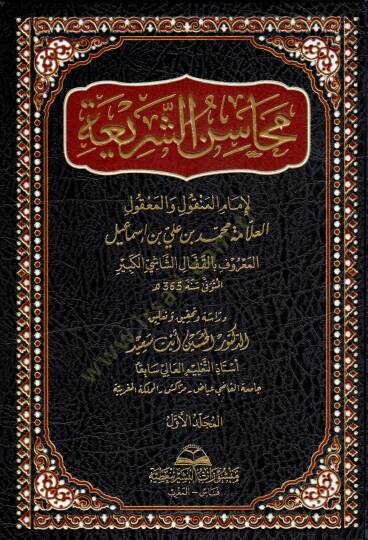 محاسن الشريعة
لإمام المنقول والمعقول
العلامة محمد بن علي بن إسماعيل
المعروف بالقفال الشاشي الكبير
المتوفى سنة 365 هـ
دراسة وتحقيق وتعليق
الدكتور الحسين أيت سعيد
أستاذ التعليم العالي سابقا
جامعة القاضي عياض - مراكش - المملكة المغربية
المجلد الأول
منشورات البشير بنعطية
فاس - المغرب